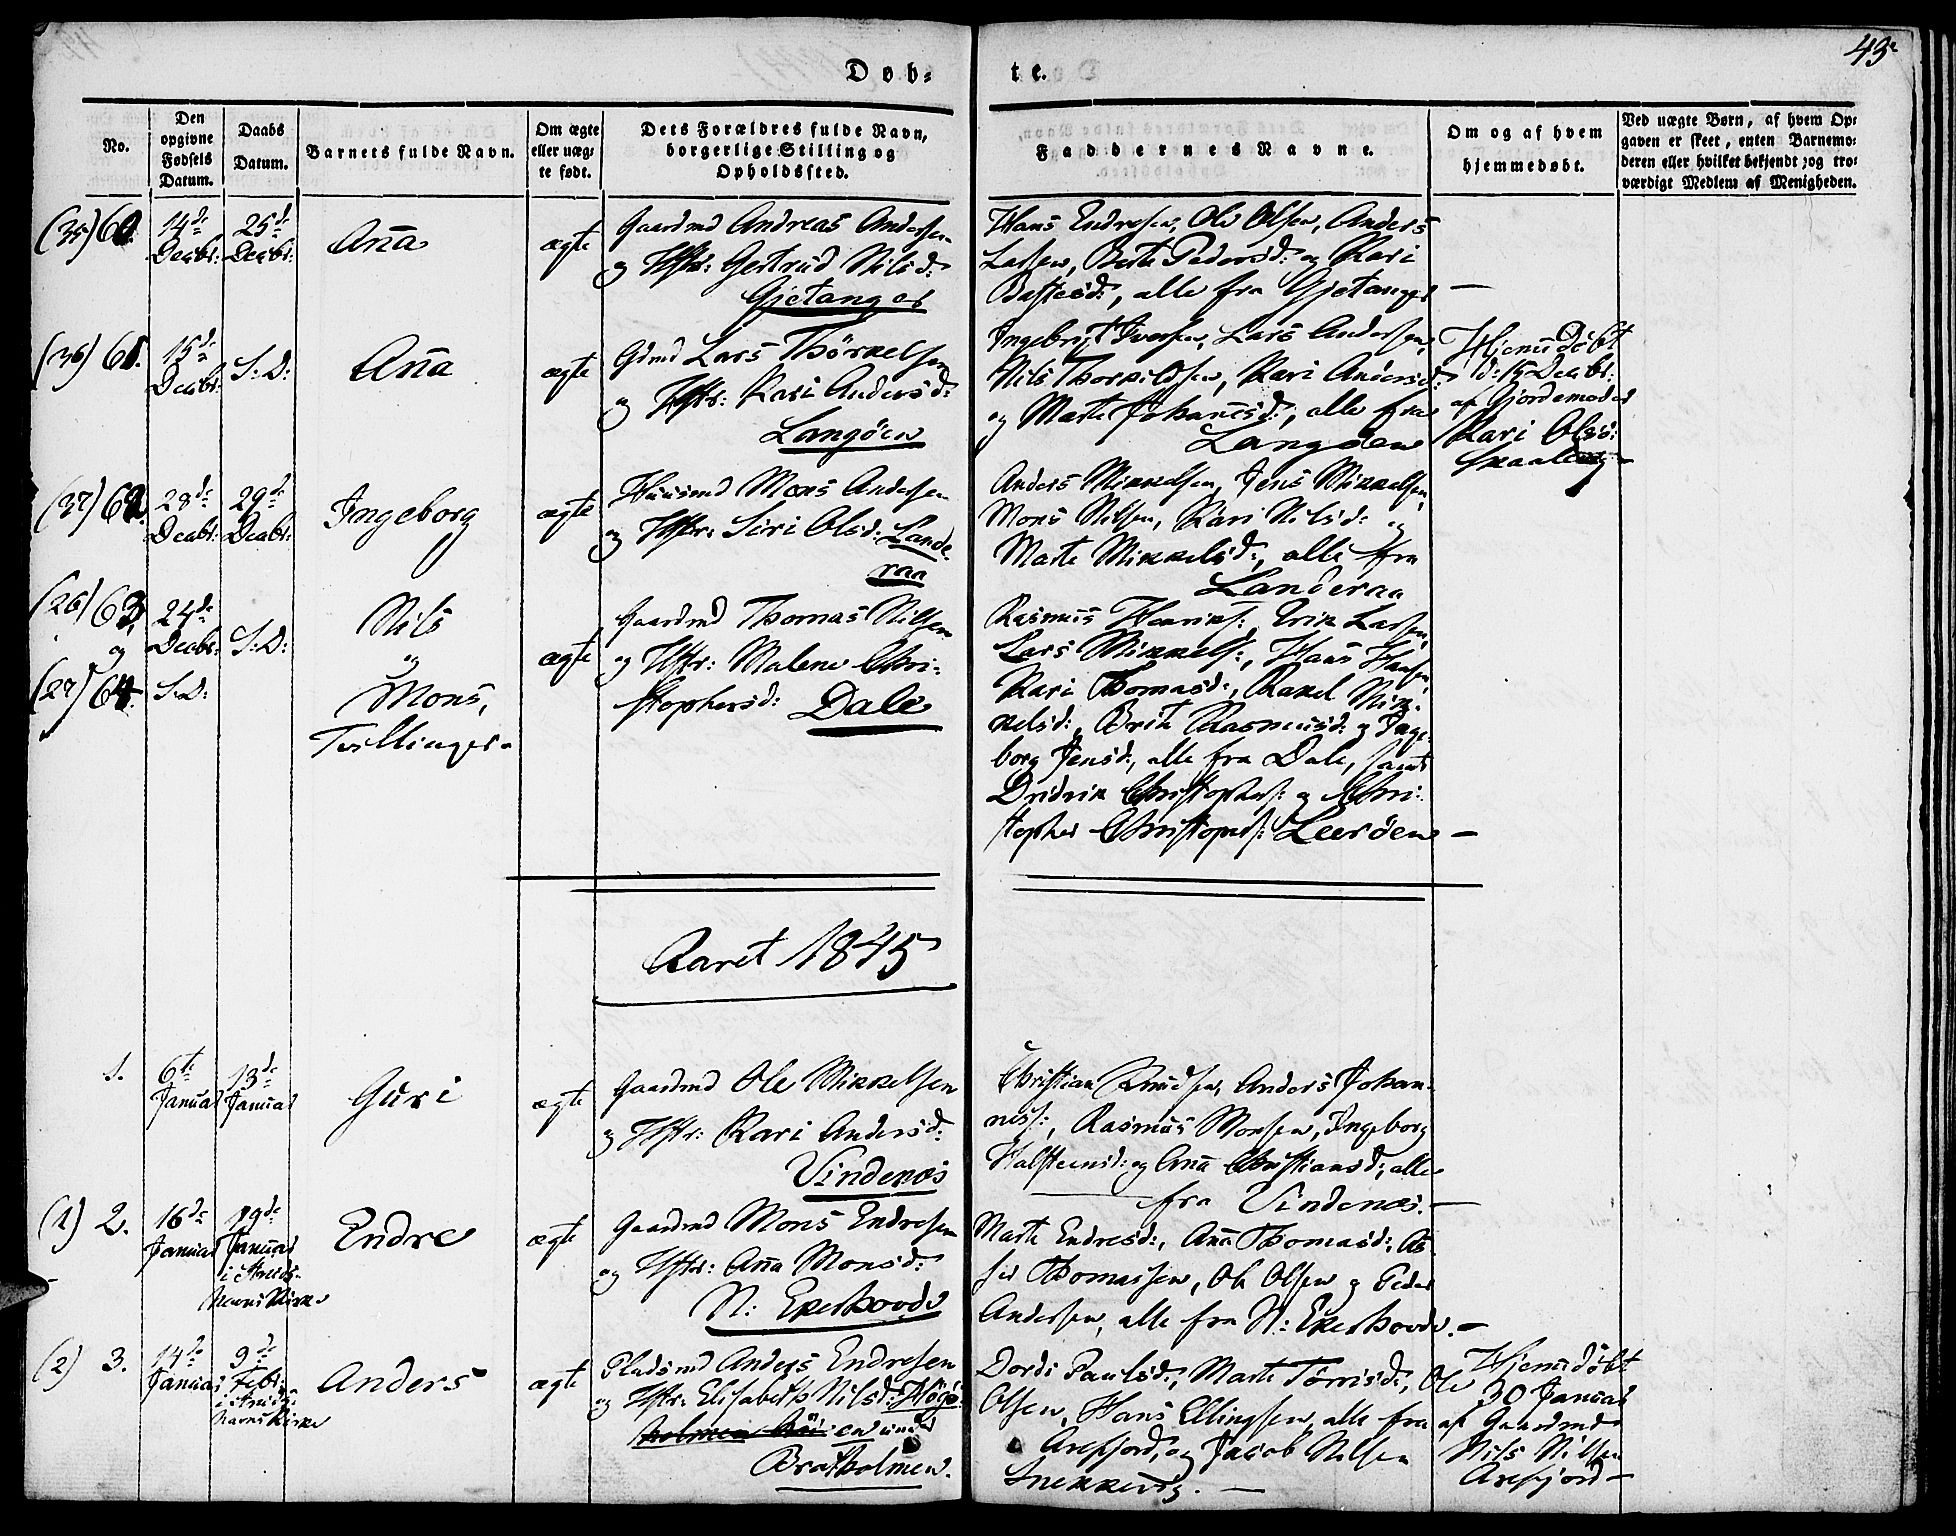 43
Døb-
te.
No.
Den
opgivne
Fødsels
Datum.
Daabs
Datum.
Barnets fulde Navn.
Om ægte
eller uæg-
te født.
Dets Forældres fulde Navn,
borgerlige Stilling og
Opholdssted.
Faddernes Navne.
Om og af hvem
hjemmedøbt.
Ved uægte Børn, af hvem Op-
gaven er skeet, enten Barnemo-
deren eller hvilket bekjendt og tro-
værdigt Medlem af Menigheden.
(35) 60.
14de
Decbr:
25de
Decbr:
Aña
ægte
Gaardmd Andreas Andersen
og Hstr: Gertrud Nilsd:
Gjetanger
Hans Endresen, Ole Olsen, Anders
Larsen, Berte Pedersd: og Kari
Bastesd:, alle fra Gjetanger —
(36) 61.
15de
Decbr:
S: D:
Aña
ægte
Gdmd Lars Thorkelsen
og Hstr: Kari Andersd:
Langøen
Ingebrigt Iversen, Lars Andersen,
Nils Thorkildsen, Kari Andersd:
og Marte Johañesd:, alle fra
Langøen
Hjem̄døbt
d: 15 Decbr:
af Gjordemoder
Kari Olsd:
(37) 62.
28de
Decbr:
29de
Decbr:
Ingeborg
ægte
Huusmd Mons Andersen
og Hstr: Siri Olsd: Lande-
raa
Anders Mikkelsen, Jens Mikkelsen
Mons Nilsen, Kari Nilsd: og
Marte Mikkelsd:, alle fra
Landeraa
(26) 63.
og
(27) 64.
24de
Decbr:
S: D:
S: D:
Nils
og
Mons,
Tvillinger.
ægte
Gaardmd Thomas Nilsen
og Hstr: Malene Chri-
stophersd: Dale
Rasmus Henriks:, Erik Larsen,
Lars Mikkels:, Hans Hansen,
Kari Thomasd:, Rakel Mik-
kelsd:, Brite Rasmusd: og Inge-
borg Jensd:, alle fra Dale, samt
Didrik Christophers: og Chri-
stopher Christophers: Leerøen —
Aaret 1845
1.
6te
Januar
13de
Januar
Guri
ægte
Gaardmd Ole Mikkelsen
og Hstr: Kari Andersd:
Vindenæs
Christian Knudsen, Anders Johan-
ness:, Rasmus Monsen, Ingeborg
Halsteensd: og Aña Christiansd:, alle
fra Vindenæs. —
(1) 2.
16de
Januar
19de
Januar
i Steeds-
Kirke
Endre
ægte
Gaardmd Mons Endresen
og Hstr: Aña Monsd:
N: Ekerhovde
Marte Endresd:, Aña Thomasd:, As-
ser Thomassen, Ole Olsen og Peder
Andersen, alle fra N: Ekerhovde. —
(2) 3.
14de
Januar
9de
Febr:
Kirke
Anders
ægte
Pladsmd Anders Endresen
og Hstr: Elisabeth Nilsd:
Bratholmen.
Dordi Paulsd:, Marte Torrisd:, Ole
Olsen, Hans Ellingsen, alle fra
Arefjord, og Jacob Nilsen
Snekkevig. —
Hjem̄døbt
30 Januar
af Gaardmd
Nils Nilsen
Arefjord —